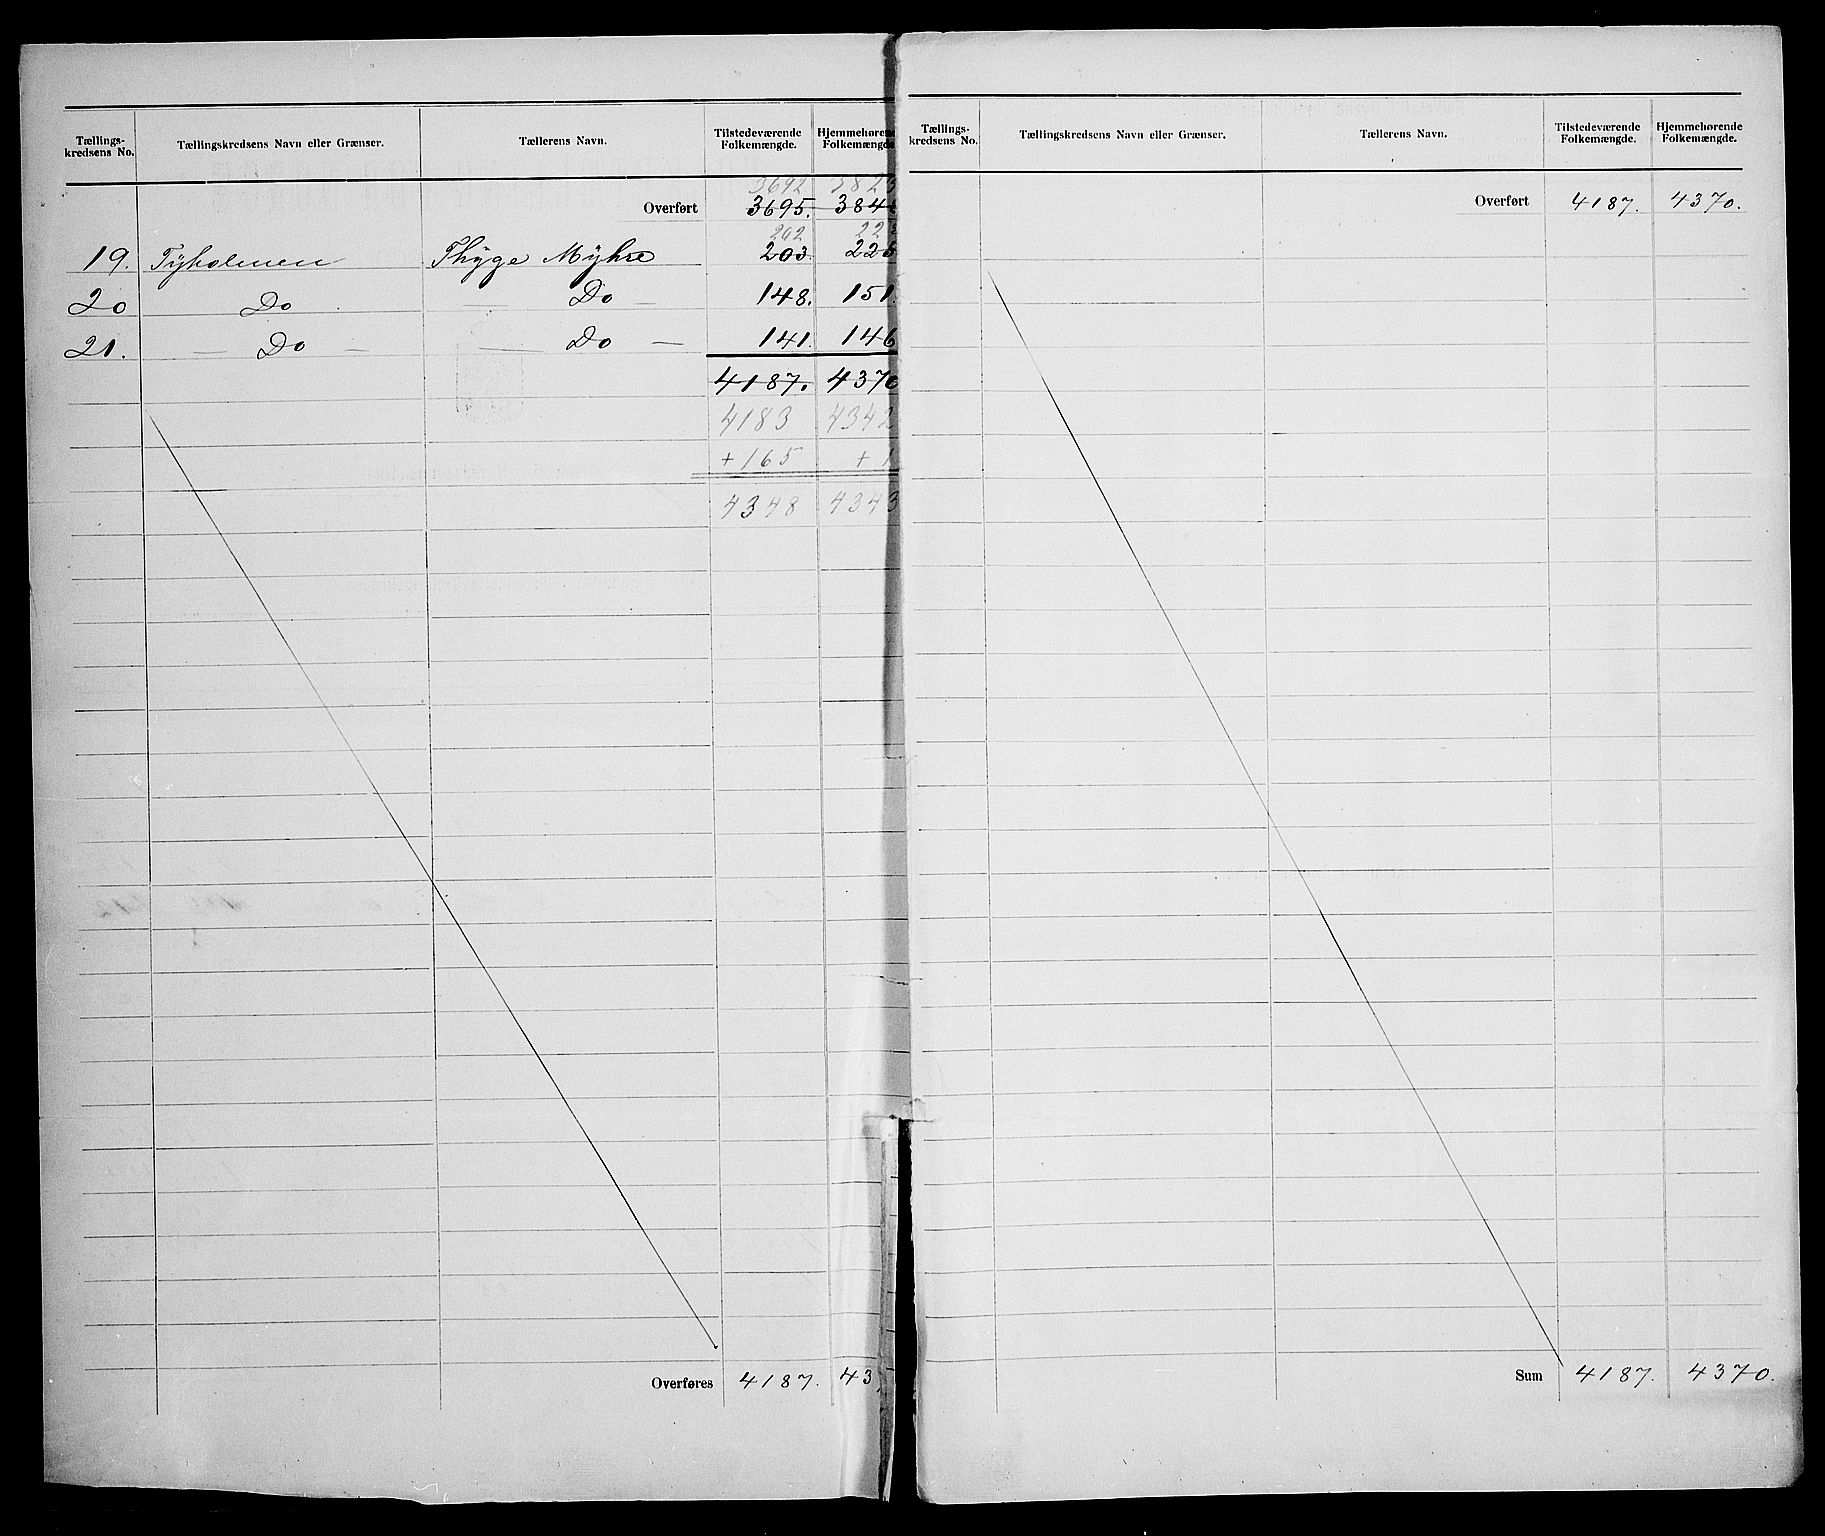 Tællings-kredsens No. Tællingskredsens Navn eller Grænser. Tællerens Navn. Tilstedeværende Folkemængde. Hjemmehørende Folkemængde.
3692 382
Overført 3695. 384
202 22
19. Tyholmen Thyge Myhre 203. 225
20 Do — Do — 148. 151.
21. — Do — — Do — 141. 146
4187. 4370
4183 4342
+165 +1
4348 4343
Overføres 4187. 43
Tællings-kredsens No. Tællingskredsens Navn eller Grænser. Tællerens Navn. Tilstedeværende Folkemængde. Hjemmehørende Folkemængde.
Overført 4187. 4370.
Sum 4187. 4370.